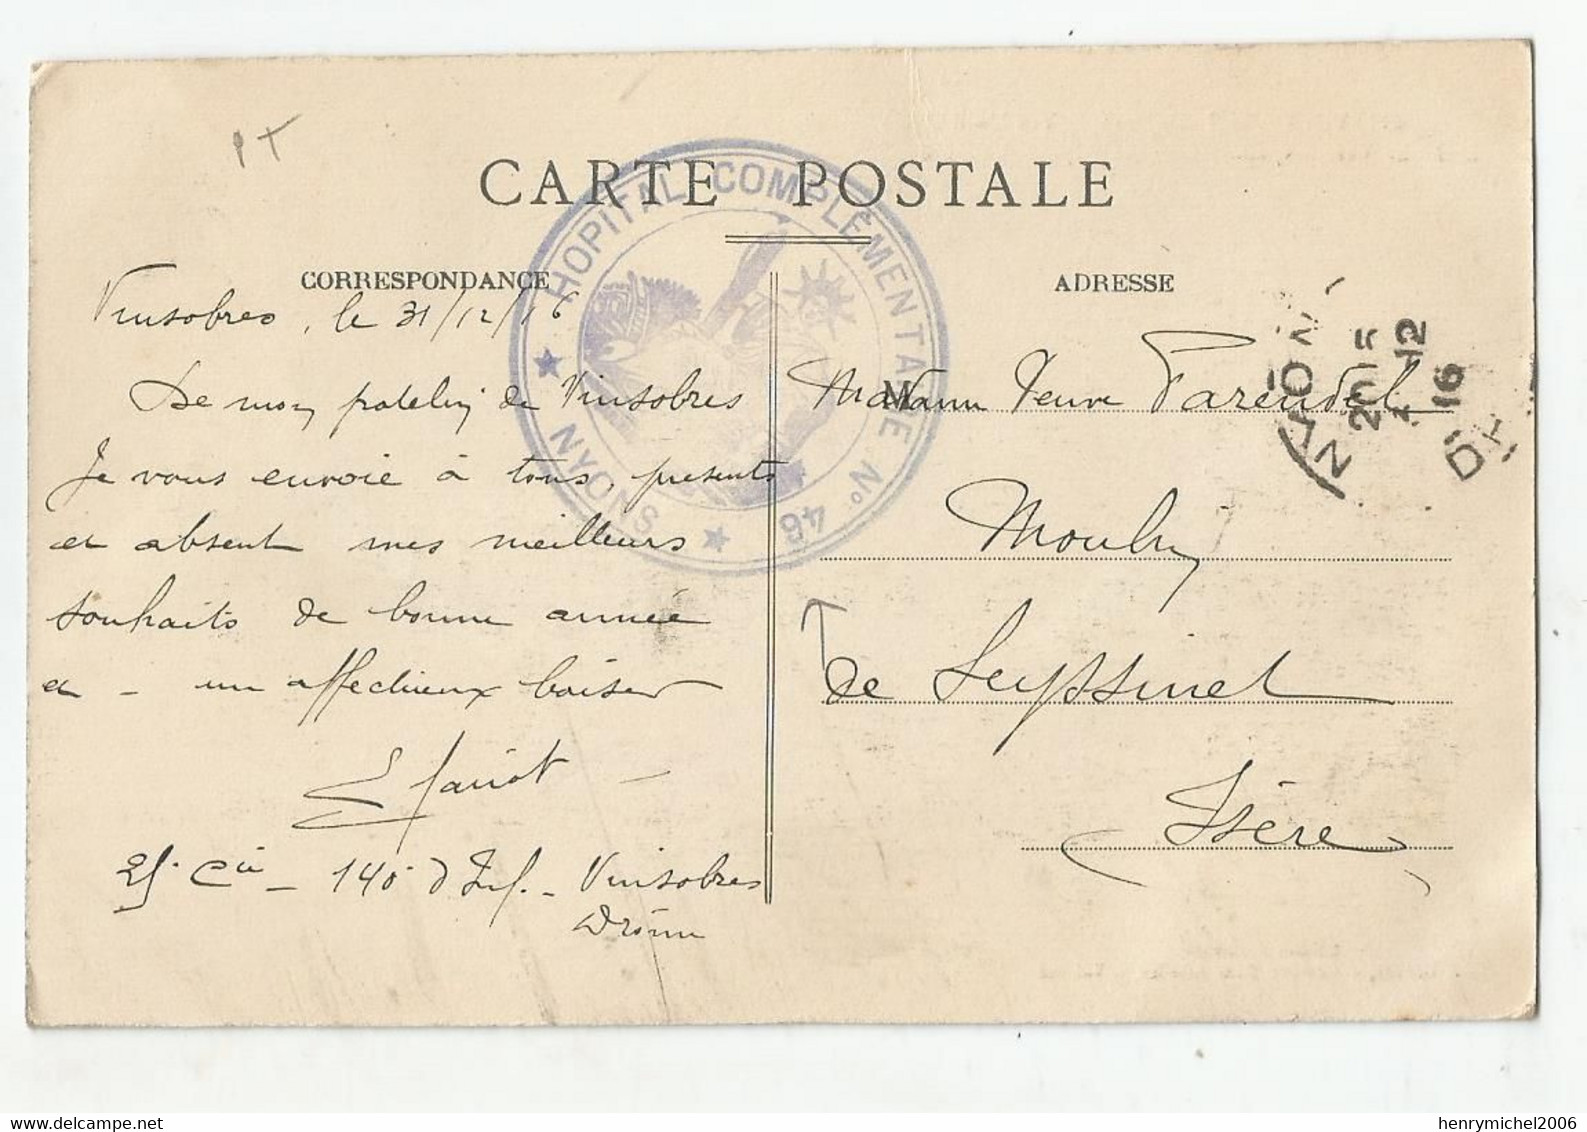 CARTE POSTALE
HOPITAL COMPLÉMENTAIRE N° 46
★ NYONS ★
CORRESPONDANCE
Vinsobres, le 31/12/16
De mon patelin de Vinsobres
Je vous envoie à tous, presents
et absent mes meilleurs
souhaits de bonne année
et - un affectueux baiser
25e Cie - 140e d'Inf. - Vinsobres
Drôme
ADRESSE
M
Madame Veuve Parendel
Moulin
de Seyssinet
Isère
NYONS
20 15
12
16
henrymichel2006